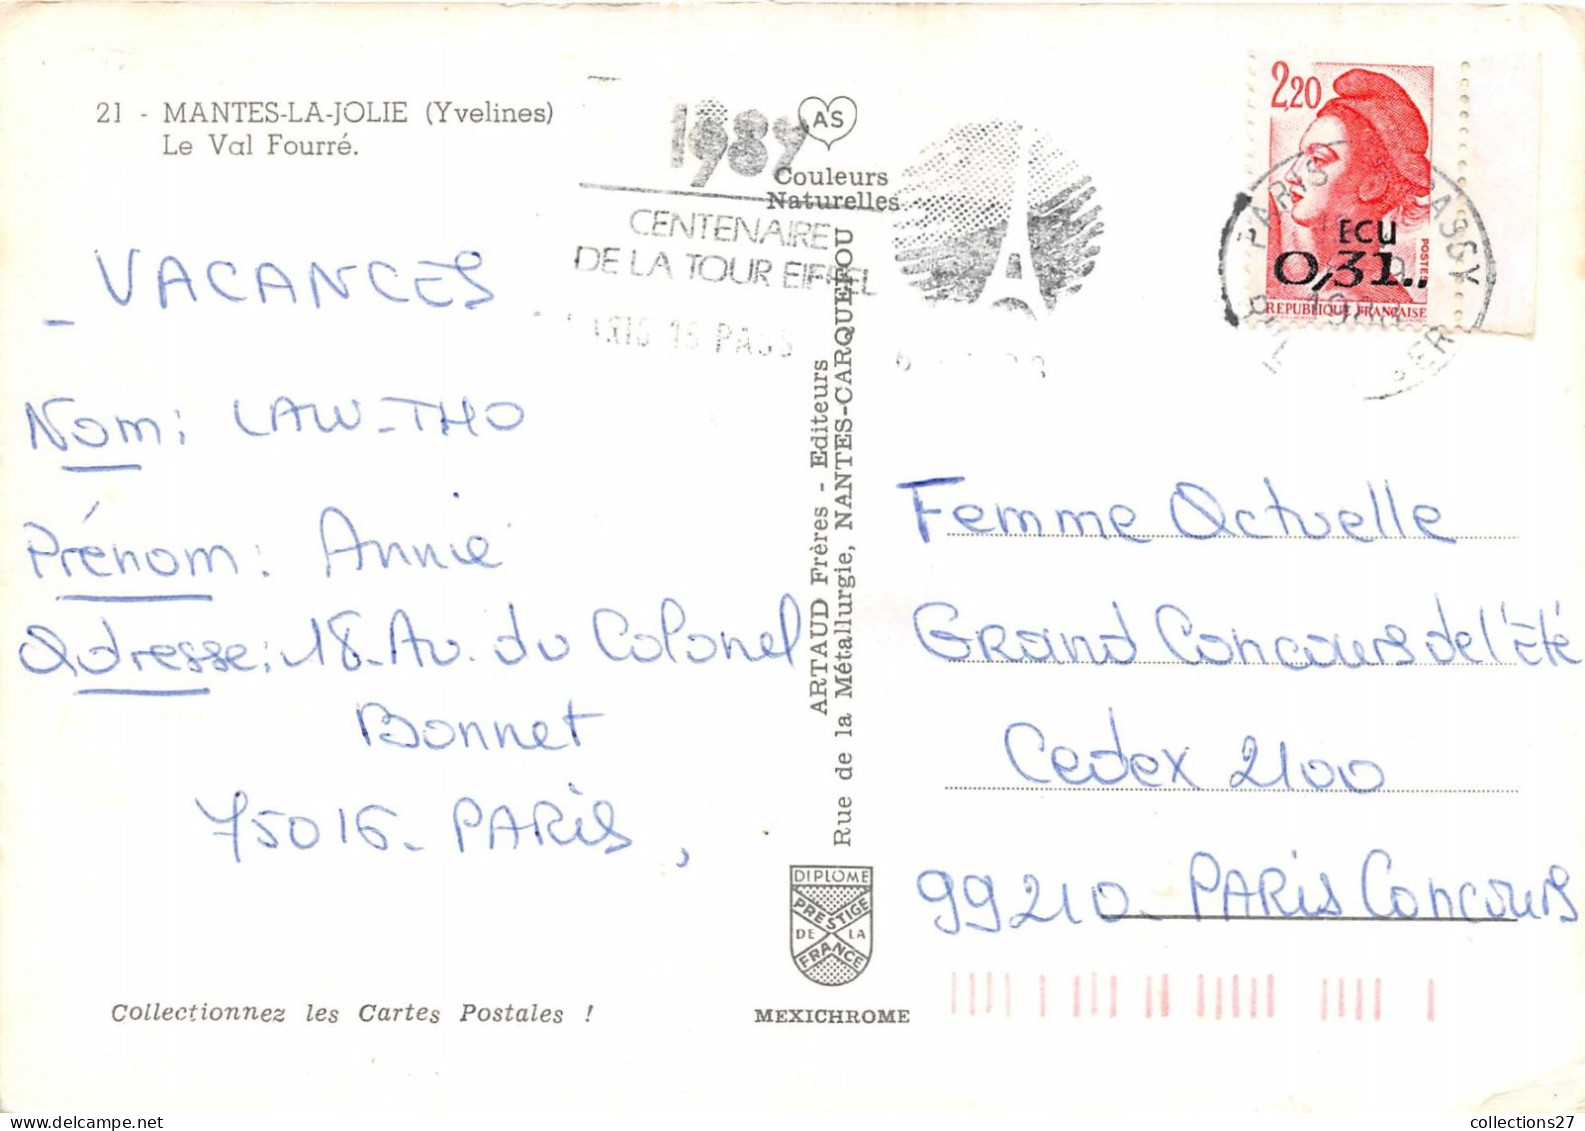 21 - MANTES-LA-JOLIE (Yvelines)
Le Val Fourré.
1989
CENTENAIRE
DE LA TOUR EIFFEL
PARIS 16 PASS
AS
Couleurs
Naturelles
2,20
ECU
0,31..
POSTES
REPUBLIQUE FRANÇAISE
PARIS PASSY
_ VACANCES _
Nom : LAW-THO
Prénom : Annie
Adresse : 18-Av. du Colonel
Bonnet
75016 - PARIS,
ARTAUD Frères - Editeurs
Rue de la Métallurgie, NANTES-CARQUEFOU
Femme Actuelle
Grand Concours de l'été
Cedex 2100
99210 - PARIS Concours
DIPLOME
PRESTIGE
DE LA
FRANCE
Collectionnez les Cartes Postales !
MEXICHROME
collections27